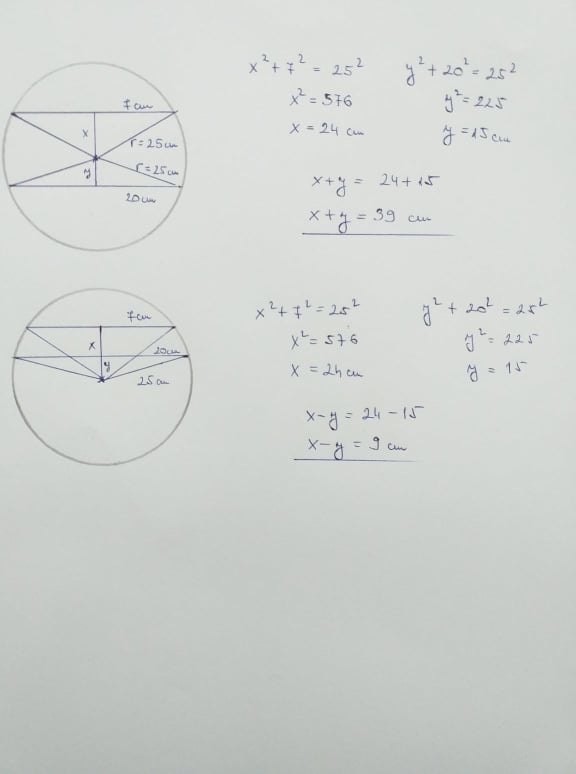 7cm
x
r=25cm
y
r=25cm
20cm
x²+7² = 25²
x²=576
x = 24 cm
y²+20²=25²
y²=225
y=15cm
x+y = 24+15
x+y = 39 cm
7cm
x
20cm
y
25cm
x²+7²=25²
x²=576
x = 24cm
y²+20² = 25²
y²= 225
y = 15
x-y = 24-15
x-y = 9 cm